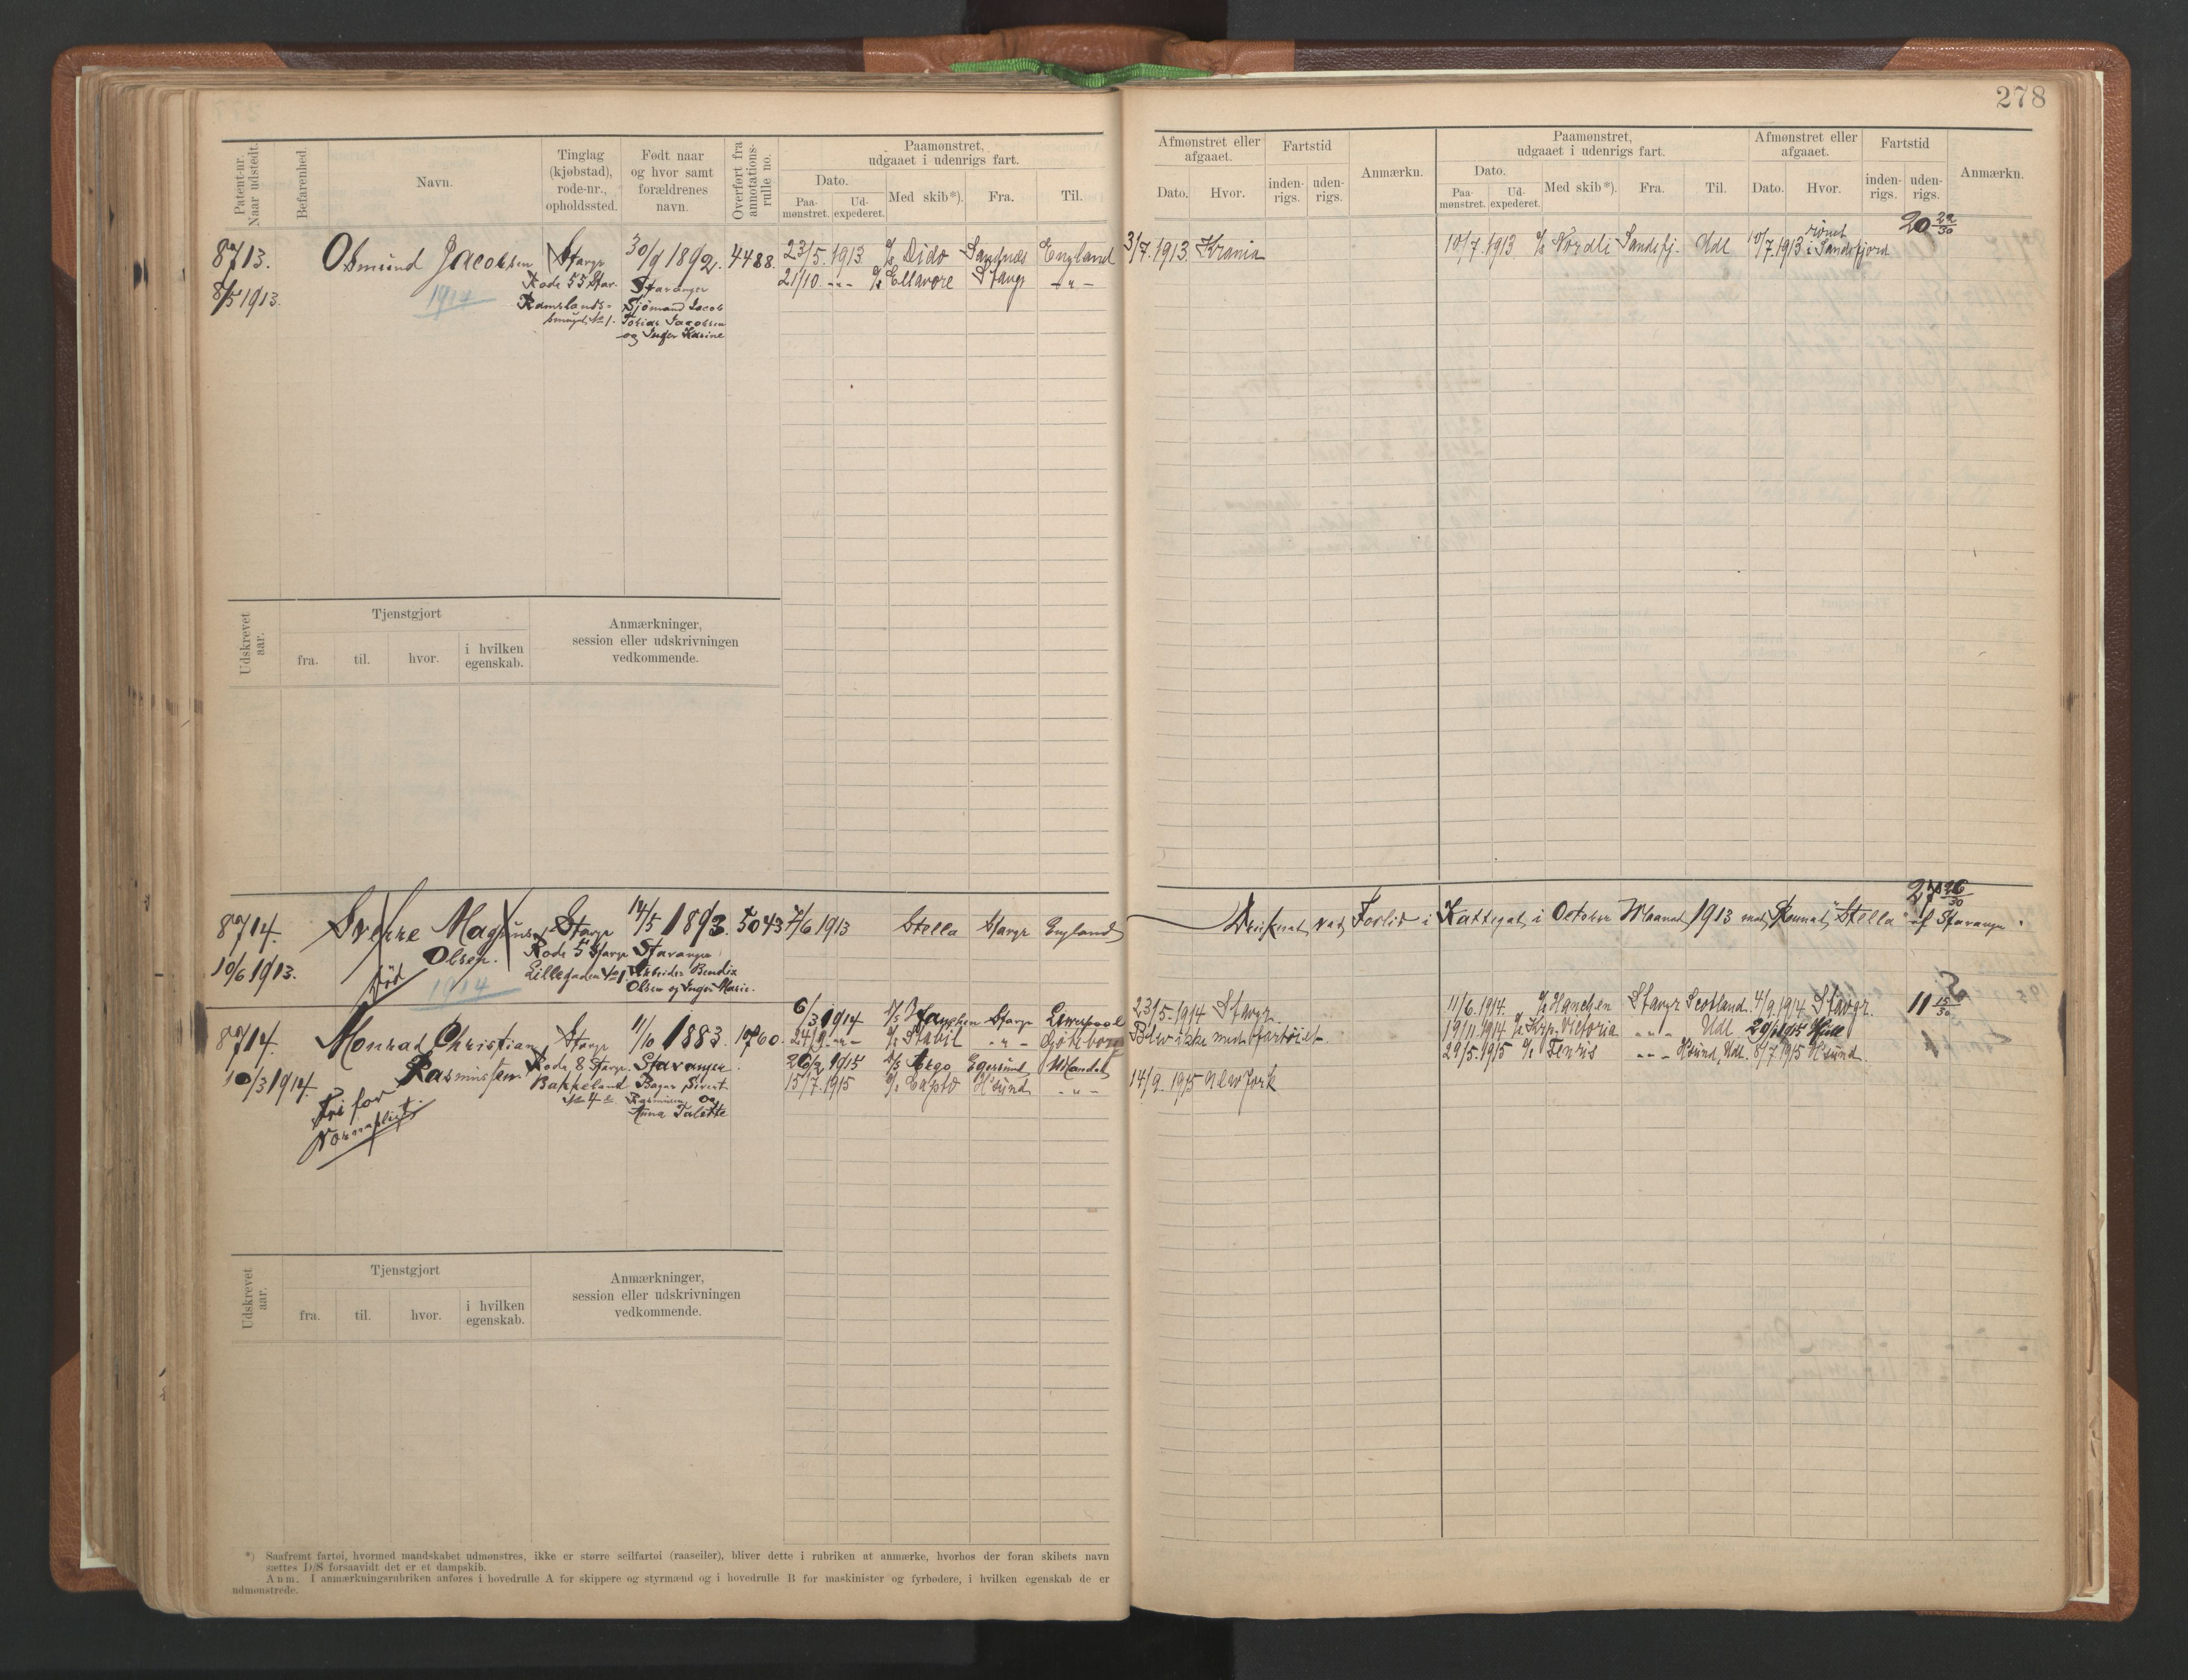 278
Patent-nr. Naar udstedt.
Befarenhed.
Navn.
Tinglag (kjøbstad), rode-nr., opholdssted.
Født naar og hvor samt forældrenes navn.
Overført fra annotations-rulle no.
Paamønstret, udgaaet i udenrigs fart.
Dato.
Paa-mønstret.
Ud-expederet.
Med skib*).
Fra.
Til.
Afmønstret eller afgaaet.
Dato.
Hvor.
Fartstid
inden-rigs.
uden-rigs.
Anmærkn.
Paamønstret, udgaaet i udenrigs fart.
Dato.
Paa-mønstret.
Ud-expederet.
Med skib*).
Fra.
Til.
Afmønstret eller afgaaet.
Dato.
Hvor.
Fartstid
inden-rigs.
uden-rigs.
Anmærkn.
8713.
8/5 1913.
Osmund Jacobsen
1914
Stavgr
Rode 55 Stav.
Ramslands-
smuget No 1.
30/9 1892.
Stavanger
Sjömand Jacob
Tobias Jacobsen
og Inger Karine
4488.
23/5. 1913 Dido Sandnæs England 3/7. 1913. Krania
21/10. -"- Ellavore Stavgr -"-
10/7. 1913 Nordli Sandefj. Udl 10/7. 1913 rømt i Sandefjord
20 29/30
Udskrevet aar.
Tjenstgjort
fra.
til.
hvor.
i hvilken egenskab.
Anmærkninger, session eller udskrivningen vedkommende.
8714.
10/6 1913.
Sverre Magnus
Olsen.
Död
1914
Stavgr
Rode 5 Stavgr
Lillegaden No 1.
14/5 1893.
Stavanger
Arbeider Bendix
Olsen og Inger Marie.
5043
7/6 1913 Stella Stavgr England
Druknet ved Forlis i Kattegat i October Maaned 1913 med Skonnert "Stella" af Stavanger.
27 26/30
8714.
10/3 1914.
Monrad Christian
Rasmussen
Fri for
Værnepligt.
Stavgr
Rode 8 Stavgr
Bakkeland
No 4
11/10 1883.
Stavanger
Bager Sivert
Rasmussen og
Anna Talette
10760.
6/3 1914 Hanchen Stavgr Liverpool 23/5. 1914 Stavgr.
24/9 -"- Stabil -"- Göteborg Blev ikke med Fartöiet
26/2 1915 Argo Egersund Mandal
15/7. 1915 Capto H'sund -"- 14/9. 1915 New York
11/6. 1914. Hanchen Stavgr Scotland. 4/9. 1914 Stavgr.
19/11. 1914 Krp. Victoria -"- Udl 29/1 1915 Hull
29/5. 1915 Fenris -"- H'sund, Udl. 5/7. 1915 H'sund.
11 15/30
Udskrevet aar.
Tjenstgjort
fra.
til.
hvor.
i hvilken egenskab.
Anmærkninger, session eller udskrivningen vedkommende.
*) Saafremt fartøi, hvormed mandskabet udmønstres, ikke er større seilfartøi (raaseiler), bliver dette i rubriken at anmærke, hvorhos der foran skibets navn
sættes D/S forsaavidt det er et dampskib.
Anm. I anmærkningsrubriken anføres i hovedrulle A for skippere og styrmænd og i hovedrulle B for maskinister og fyrbødere, i hvilken egenskab de er
udmønstrede.